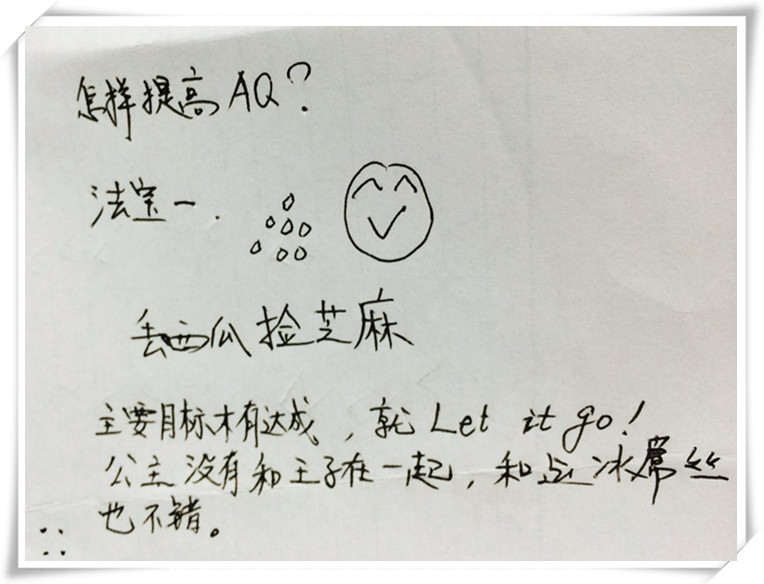 怎样提高 AQ?
法宝一.
丢西瓜捡芝麻
主要目标木有达成,就 Let it go!
公主没有和王子在一起,和运冰屌丝
也不错。